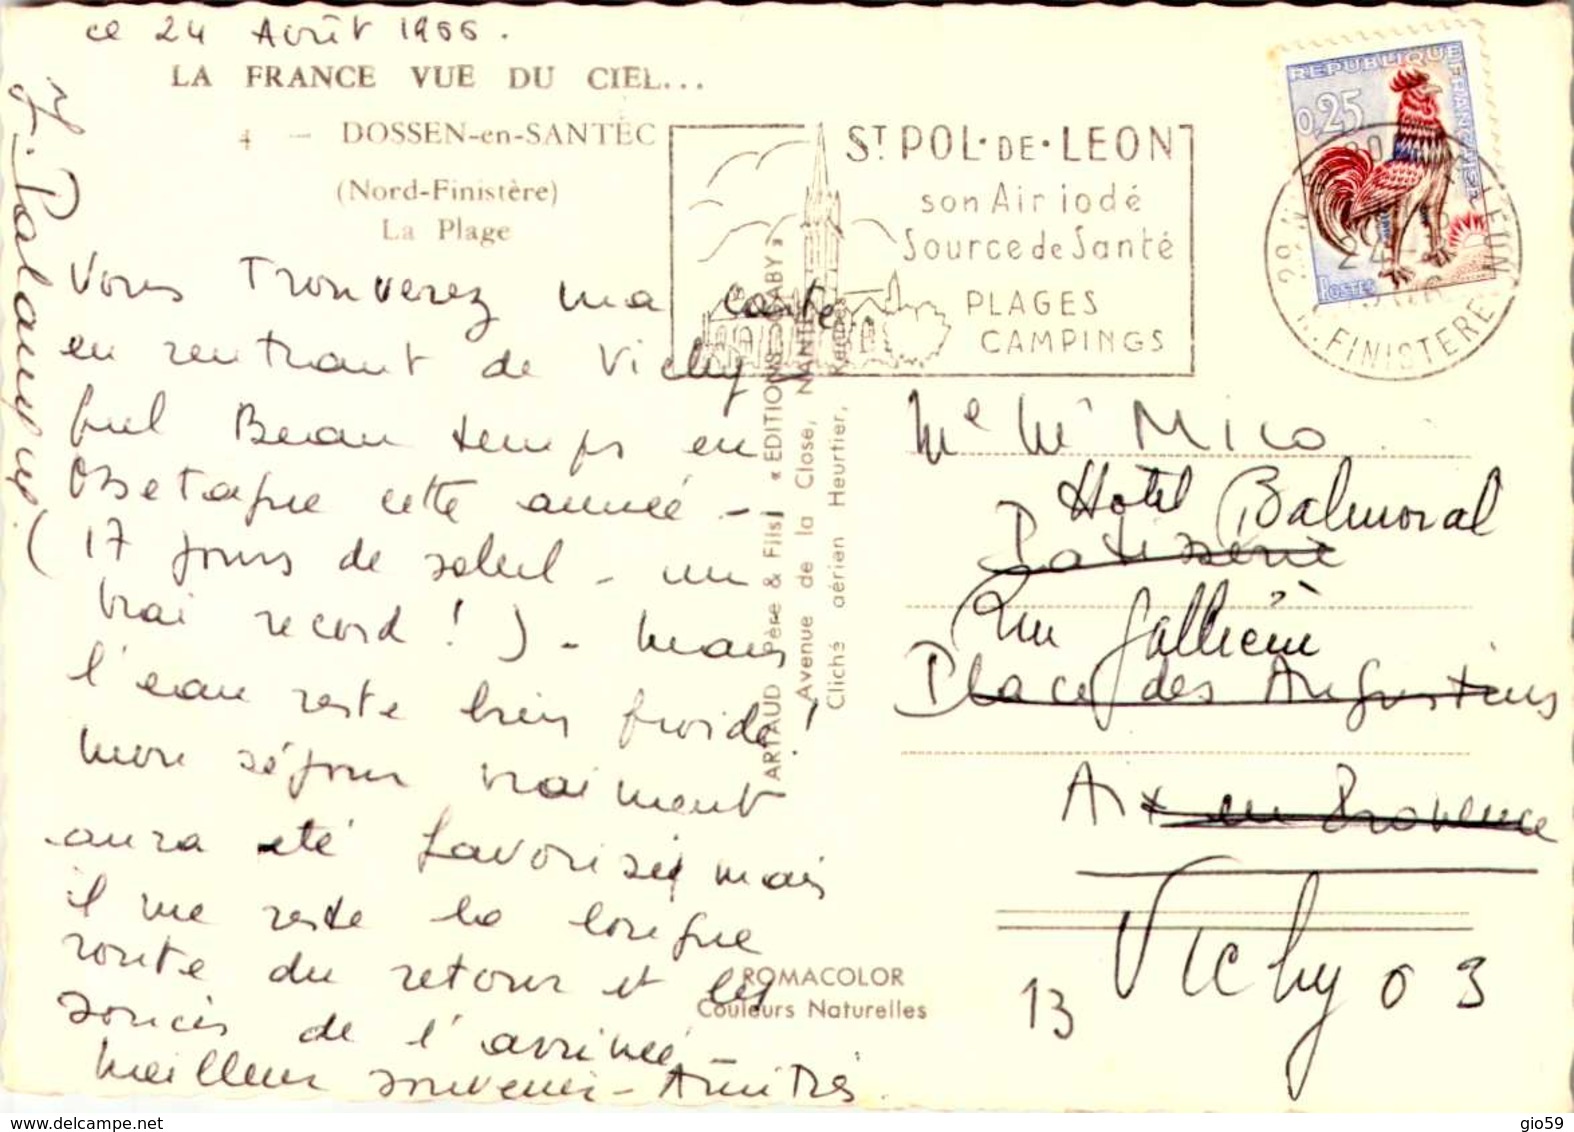 ce 24 Août 1966.
LA FRANCE VUE DU CIEL...
4 — DOSSEN-en-SANTEC
(Nord-Finistère)
La Plage
Vous trouverez ma carte
en rentrant de Vichy
quel Beau temps en
cette année -
(17 jours de soleil - un
vrai record ! ) - Mais
l'eau reste bien froide !
mon séjour vraiment
aura été favorisé, mais
il me reste la longue
route du retour et les
soucis de l'arrivée -
Meilleur souvenir - Amitiés.
ST POL·DE·LEON
son Air iodé
Source de Santé
PLAGES
CAMPINGS
REPUBLIQUE FRANÇAISE
0,25
POSTES
FINISTERE
ARTAUD Père & Fils] « EDITIONS GABY »
Avenue de la Close, NANTES
Cliché aérien Heurtier, Rennes
Me Mr MICO
Hôtel Balmoral
Patisserie
Rue Galliéni
Place des Augustins
Aix en Provence
13 Vichy 03
ROMACOLOR
Couleurs Naturelles
gio59